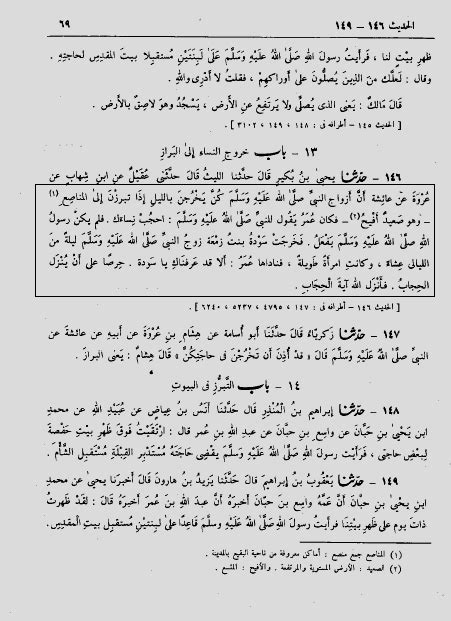 الحديث ١٤٦ – ١٤٩
٦٩
ظهر بيْتٍ لنا ، فَرأيتُ رسولَ اللهِ صَلَّى اللهُ عَلَيْهِ وَسَلَّمَ عَلَى لَبِنَتَيْنِ مُستقبِلا بيتَ المقدِسِ لحاجتِهِ .
وقال : لَعلَّكَ منَ الذينَ يُصلُّونَ عَلَى أوراكِهِمْ ، فقلتُ لا أدْرِى واللهِ .
قَالَ مَالكٌ : يَعنى الذى يُصلِّى ولا يَرتفِعُ عنِ الأرضِ ، يَسْجُدُ وهوَ لاصِقٌ بالأَرضِ .
[ الحديث ١٤٥ – أطرافه فى : ١٤٨ ، ١٤٩ ، ٣١٠٢ ] .
١٣ – باب خروجِ النساءِ إلَى البَرازِ
١٤٦ – حدّثنا يحيَى بنُ بُكَيرٍ قَالَ حدَّثنا الليثُ قَالَ حدَّثَنى عُقَيْلٌ عنِ ابنِ شِهابٍ عن
عُرْوَةَ عنْ عائشةَ أنَّ أَزواجَ النبىِّ صلَّى اللهُ عَلَيْهِ وَسَلَّمَ كُنَّ يَخْرُجنَ بالليلِ إِذَا تبرزْنَ إلَى المناصِعِ (١)
– وهو صَعيدٌ أفْيحُ(٢) – فكان عُمَرُ يَقولُ للنبىِّ صَلَّى اللهُ عَلَيْهِ وَسَلَّمَ : احجُبْ نِساءَكَ . فلم يكنْ رسولُ
اللهِ صَلَّى اللهُ عَلَيْهِ وَسَلَّمَ يَفْعَلُ . فخرَجَتْ سَوْدَةُ بنتُ زمْعَةَ زوجُ النبىِّ صَلَّى اللهُ عَلَيْهِ وَسَلَّمَ ليلةً منَ
الليالى عِشاءً ، وكانتِ امرأةً طَويلةً ، فناداها عُمرُ : ألا قد عرَفناكِ يا سَودة . حِرصًا عَلَى أنْ يُنْزَلَ
الحِجابُ . فأَنْزَلَ الله آيةَ الْحِجَابِ .
[ الحديث ١٤٦ – أطرافه فى : ١٤٧ ، ٤٧٩٥ ، ٥٢٣٧ ، ٦٢٤٠ ] .
١٤٧ – حدّثنا زكرِيَّاءُ قالَ حدَّثنا أبو أُسامةَ عن هِشامِ بنِ عُرْوَةَ عن أبيهِ عن عائشةَ عن
النبىِّ صَلَّى اللهُ عَلَيْهِ وَسَلَّمَ قَالَ « قد أُذِنَ أن تَخْرُجْنَ فى حاجتِكنَّ » قالَ هِشامٌ : يَعنى البرازَ .
١٤ – باب التَّبرُّزِ فى البيوتِ
١٤٨ – حدّثنا إبراهيمُ بنُ المُنْذِرِ قال حدَّثنا أنَسُ بنُ عِياضٍ عن عُبَيدِ اللهِ عن محمدِ
ابنِ يَحْيَى بنِ حَبَّانَ عن واسِعِ بنِ حبَّانَ عن عبدِ اللهِ بنِ عمرَ قال : ارتَقَيْتُ فَوقَ ظَهرِ بيتِ حَفْصةَ
لِبعضِ حاجتى ، فرَأيت رسولَ اللهِ صَلَّى اللهُ عَلَيْهِ وَسَلَّمَ يقْضِى حَاجَتَه مُسْتدْبِرَ القِبْلَةِ مُستقْبِلَ الشَّأْمِ .
١٤٩ – حدّثنا يَعْقوبُ بنُ إبراهيمَ قالَ حدَّثَنا يَزِيدُ بنُ هارونَ قالَ أخبرَنا يحيى عن محمدِ
ابنِ يحيَى بنِ حبَّانَ أنَّ عمَّهُ واسِعَ بنَ حَبَّانَ أخبرَهُ أنَّ عبدَ اللهِ بنَ عُمرَ أخبرَهُ قالَ : لَقدْ ظَهرْتُ
ذاتَ يومٍ عَلَى ظَهرِ بيْتِنا فرأيتُ رسولَ اللهِ صَلَّى اللهُ عَلَيْهِ وَسلَّمَ قاعِدًا عَلَى لَبِنتَيْنِ مُستقبلَ بيتِ المَقْدِس.
(١) المناصع جمع منصع : أماكن معروفة من ناحية البقيع بالمدينة .
(٢) الصعيد : الأرض المستوية والمرتفعة . والأفيح : المتسع .